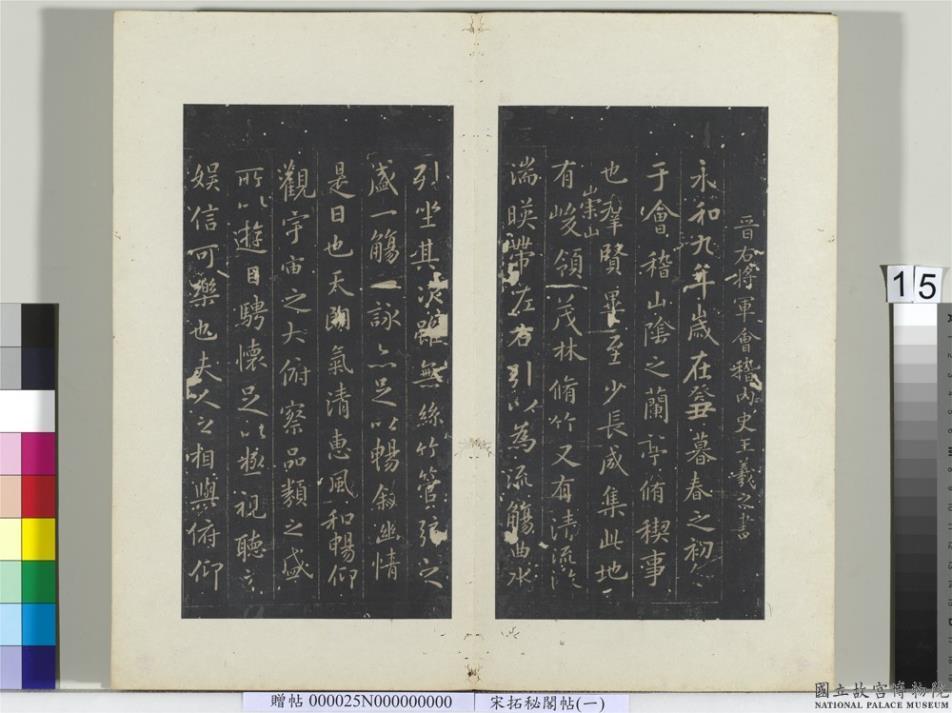 晉右將軍會稽內史王羲之書
永和九年歲在癸丑暮春之初會
于會稽山陰之蘭亭脩稧事
也羣賢畢至少長咸集此地
有崇山峻領茂林脩竹又有清流激
湍暎帶左右引以為流觴曲水
引坐其次雖無絲竹管弦之
盛一觴一詠亦足以暢敘幽情
是日也天朗氣清惠風和暢仰
觀宇宙之大俯察品類之盛
所以遊目騁懷足以極視聽之
娛信可樂也夫人之相與俯仰
15
贈帖 000025N000000000 宋拓秘閣帖(一)
國立故宮博物院
NATIONAL PALACE MUSEUM